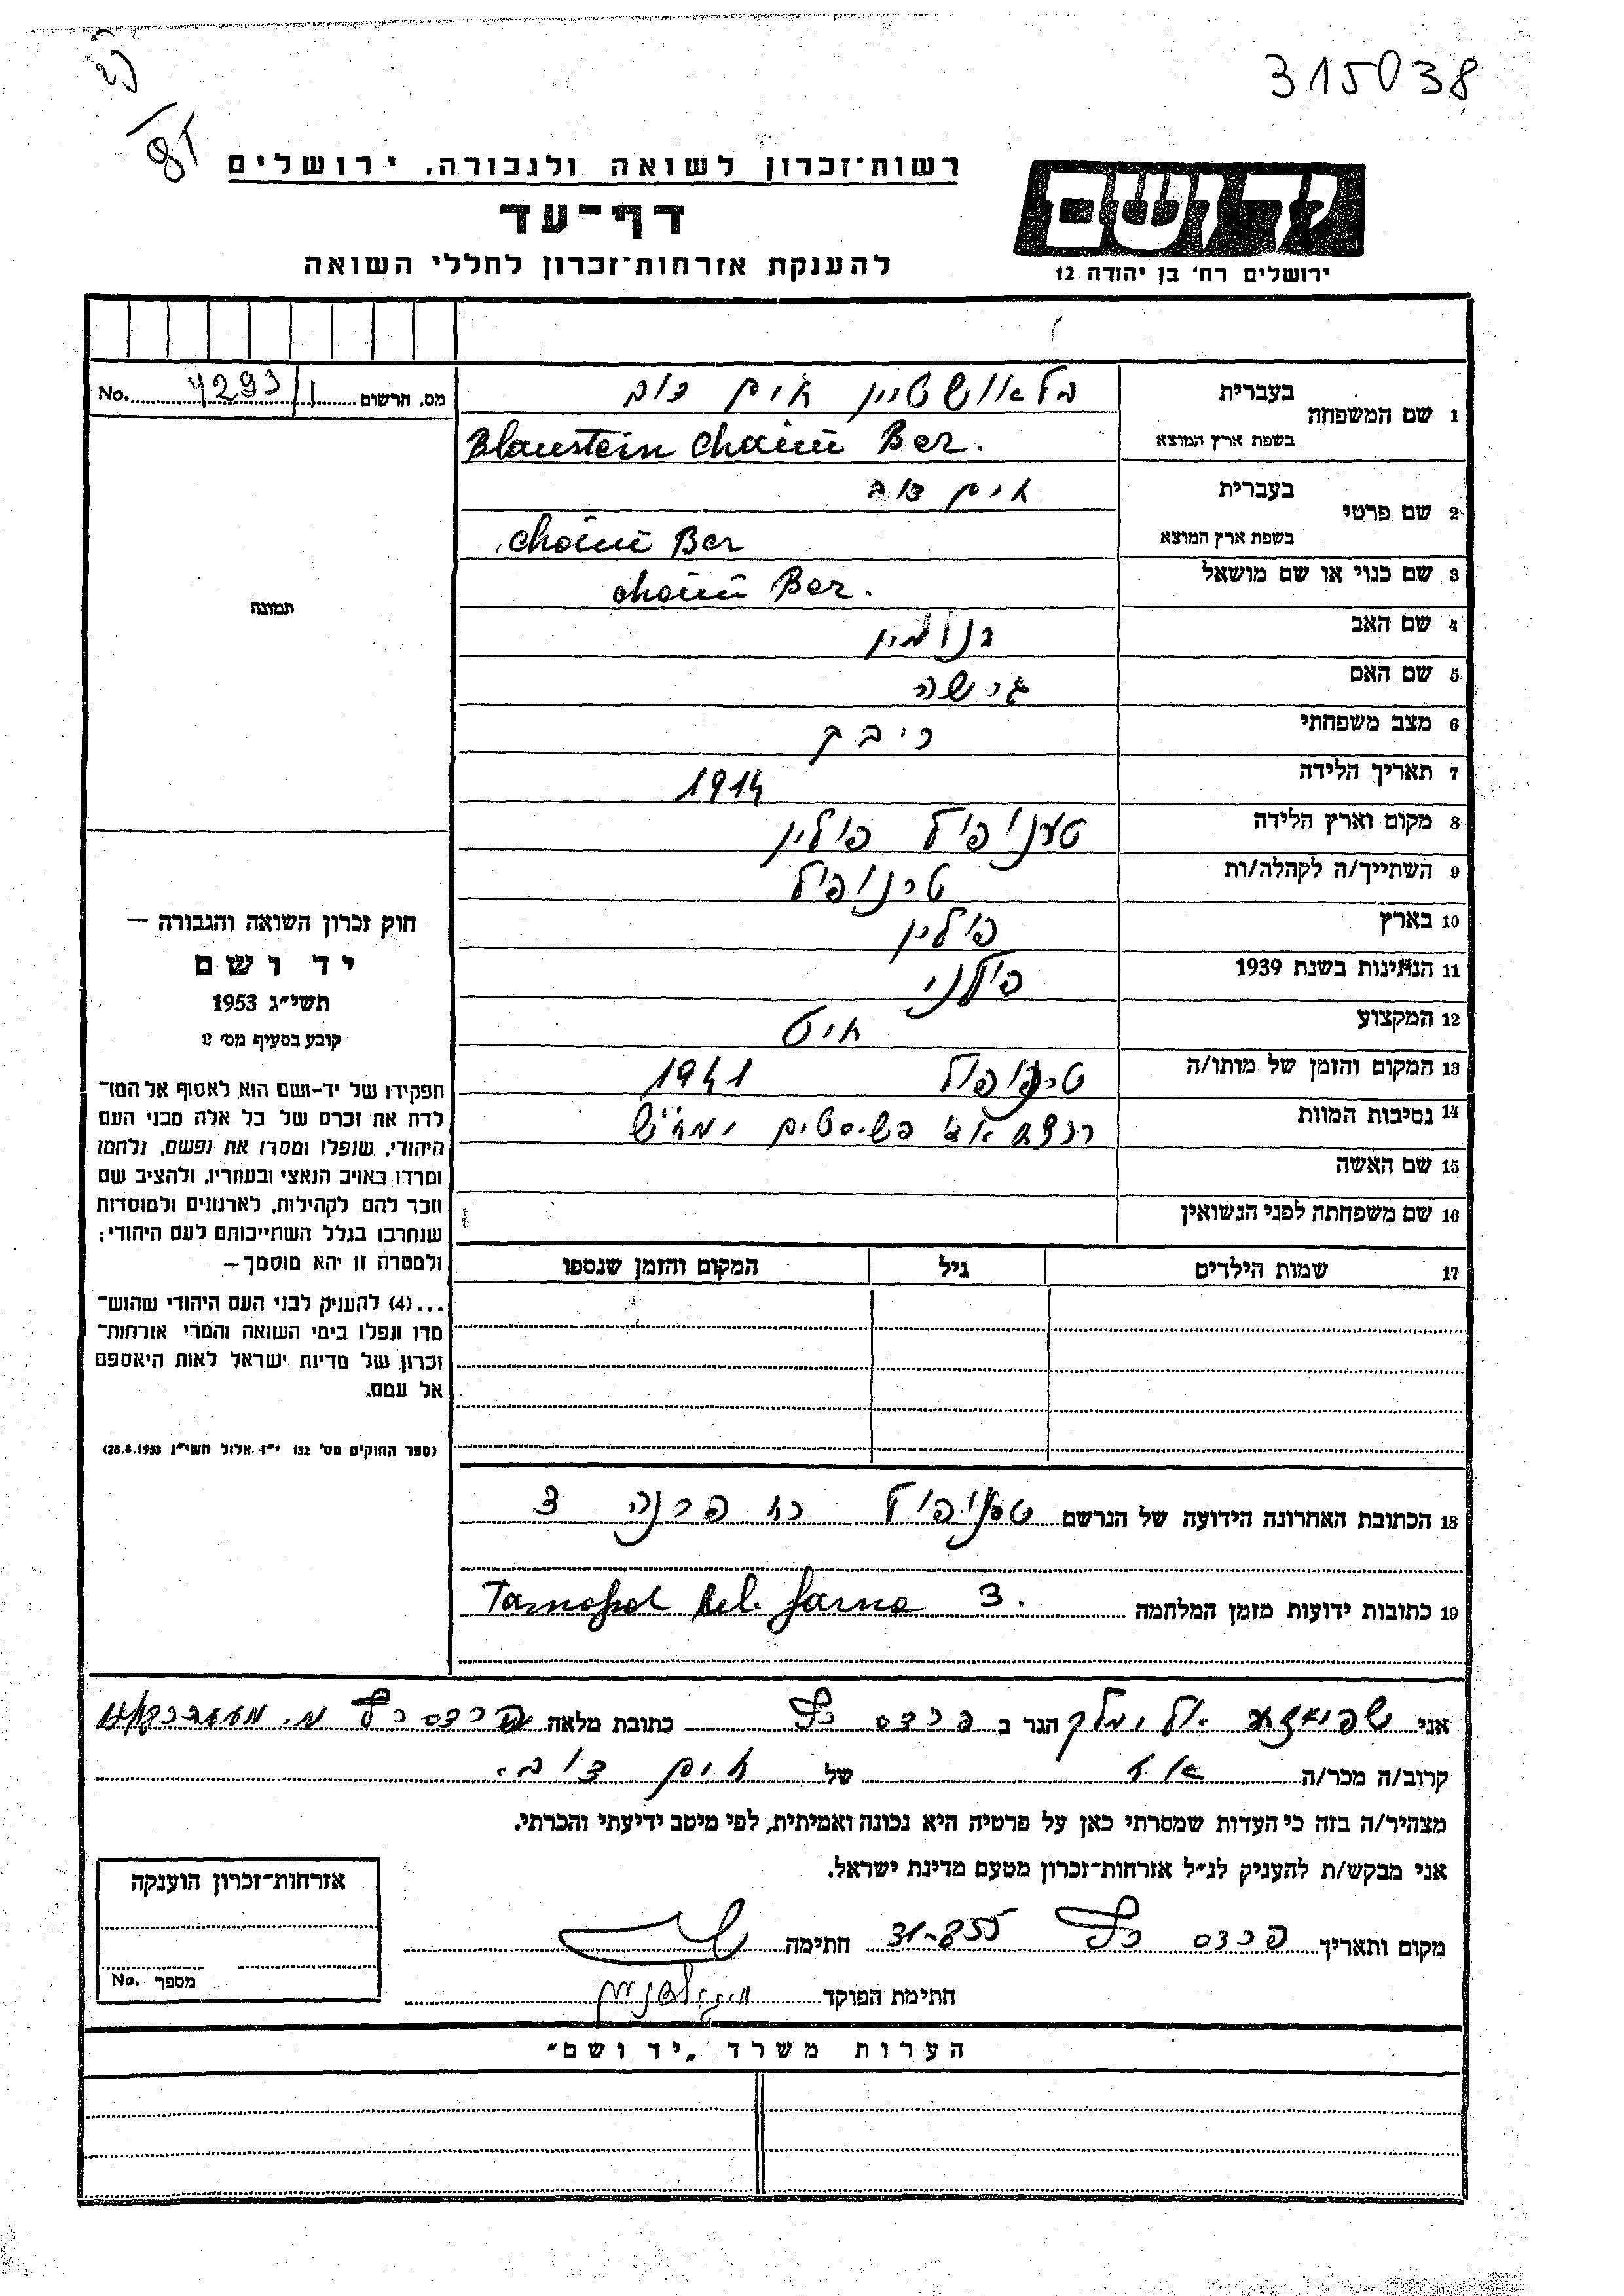 315038
רשות־זכרון לשואה ולגבורה, ירושלים
דף־עד
להענקת אזרחות־זכרון לחללי השואה
יד ושם
ירושלים רח' בן יהודה 12
מס. הרשום 7293/1 No.
1 שם המשפחה בעברית בלאושטיין חיים דוב
בשפת ארץ המוצא Blaustein Chaim Ber.
2 שם פרטי בעברית חיים דוב
בשפת ארץ המוצא Chaim Ber
3 שם כנוי או שם מושאל Chaim Ber.
4 שם האב בנימין
5 שם האם
6 מצב משפחתי
7 תאריך הלידה 1914
8 מקום וארץ הלידה טרנופול פולין
9 השתייך/ה לקהלה/ות טרנופול
10 בארץ פולין
11 הנתינות בשנת 1939 פולני
12 המקצוע חיט
13 המקום והזמן של מותו/ה טרנופול 1941
14 נסיבות המוות
15 שם האשה
16 שם משפחתה לפני הנשואין
17 שמות הילדים גיל המקום והזמן שנספו
18 הכתובת האחרונה הידועה של הנרשם טרנופול רח 3
19 כתובות ידועות מזמן המלחמה Tarnopol 3.
תמונה
חוק זכרון השואה והגבורה —
יד ושם
תשי״ג 1953
קובע בסעיף מס׳ 2
תפקידו של יד־ושם הוא לאסוף אל המו־
לדת את זכרם של כל אלה מבני העם
היהודי, שנפלו ומסרו את נפשם, נלחמו
ומרדו באויב הנאצי ובעוזריו, ולהציב שם
וזכר להם לקהילות, לארגונים ולמוסדות
שנחרבו בגלל השתייכותם לעם היהודי:
ולמטרה זו יהא מוסמך —
...(4) להעניק לבני העם היהודי שהוש־
מדו ונפלו בימי השואה והמרי אזרחות־
זכרון של מדינת ישראל לאות היאספם
אל עמם.
(ספר החוקים מס׳ 132 י״ז אלול תשי״ג 28.8.1953)
אני אלימלך הגר ב פרדס כץ כתובת מלאה פרדס כץ
קרוב/ה מכר/ה אח של חיים דוב.
מצהיר/ה בזה כי העדות שמסרתי כאן על פרטיה היא נכונה ואמיתית, לפי מיטב ידיעתי והכרתי.
אני מבקש/ת להעניק לנ״ל אזרחות־זכרון מטעם מדינת ישראל.
מקום ותאריך פרדס כץ 31-8-55 חתימה
חתימת הפוקד
אזרחות־זכרון הוענקה
מספר No.
הערות משרד „יד ושם״